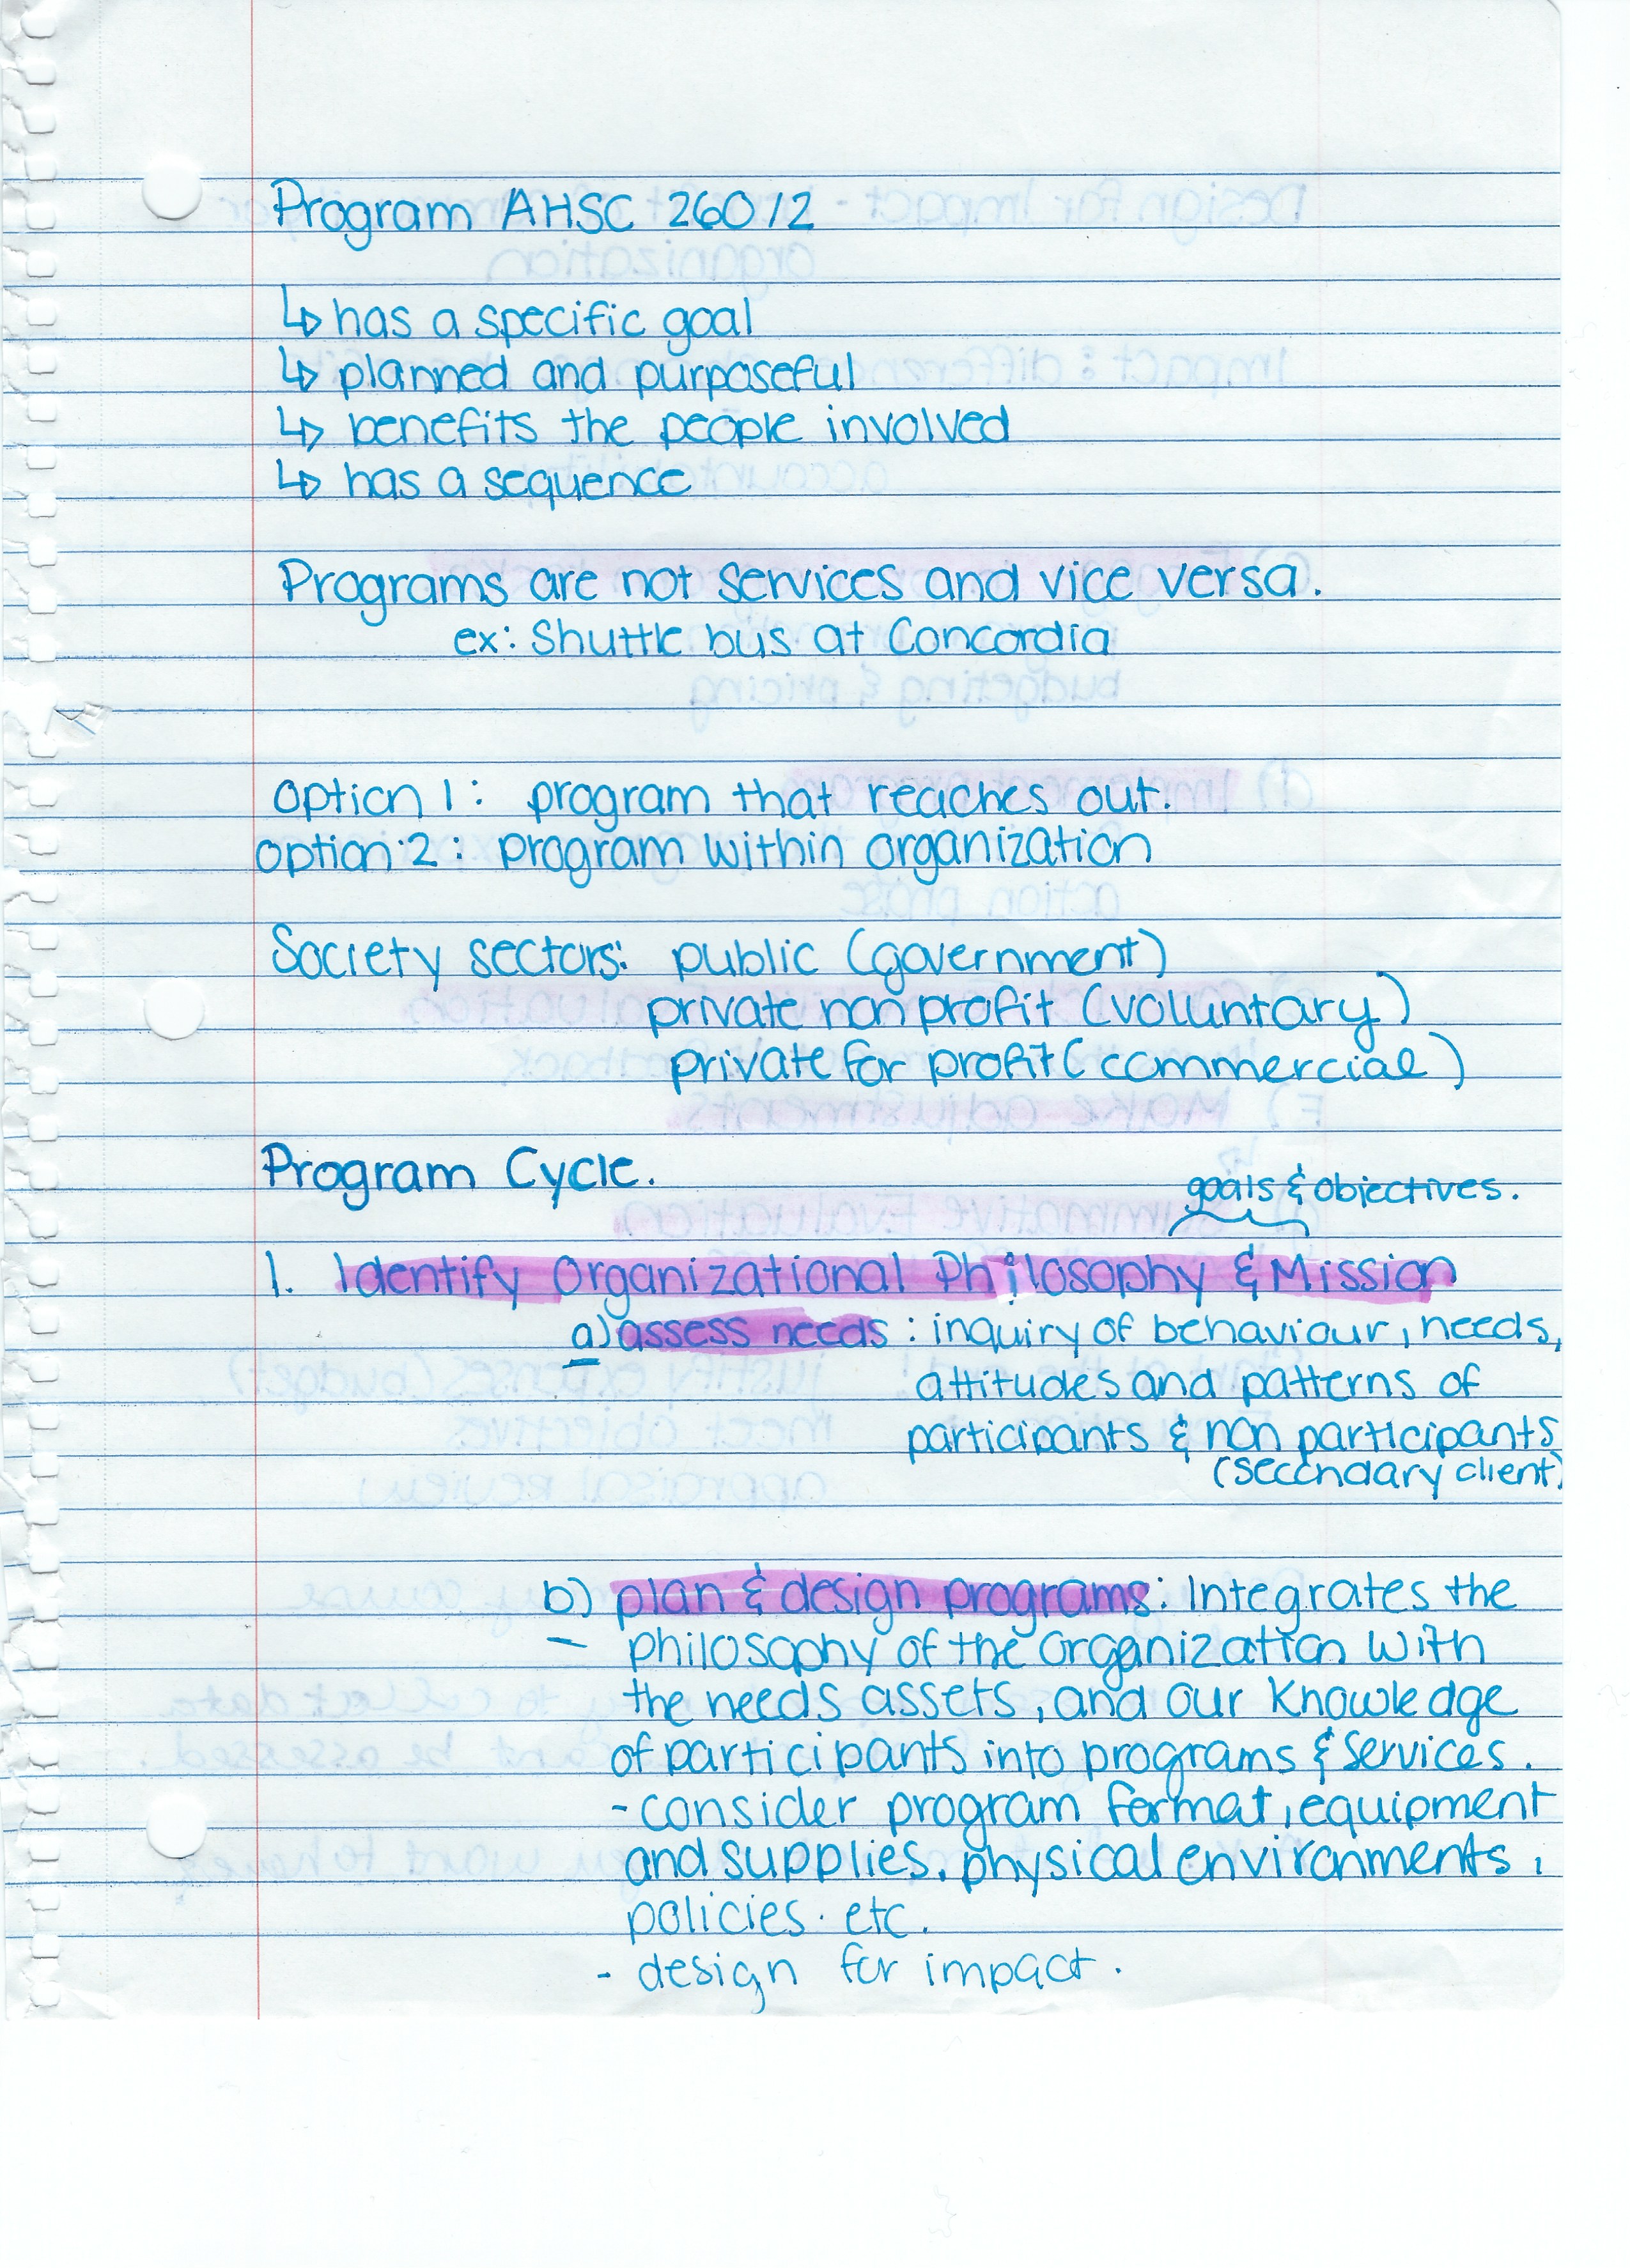 Program AHSC 260/2
↳ has a specific goal
↳ planned and purposeful
↳ benefits the people involved
↳ has a sequence
Programs are not services and vice versa.
ex: Shuttle bus at Concordia
Option 1: program that reaches out.
Option 2: program within organization
Society sectors: public (government)
private non profit (voluntary)
private for profit (commercial)
Program Cycle.
goals & objectives.
1. Identify Organizational Philosophy & Mission
a) assess needs: inquiry of behaviour, needs,
attitudes and patterns of
participants & non participants
(secondary client)
b) plan & design programs: Integrates the
philosophy of the organization with
the needs assets, and our knowledge
of participants into programs & services.
- consider program format, equipment
and supplies, physical environments,
policies. etc.
- design for impact.